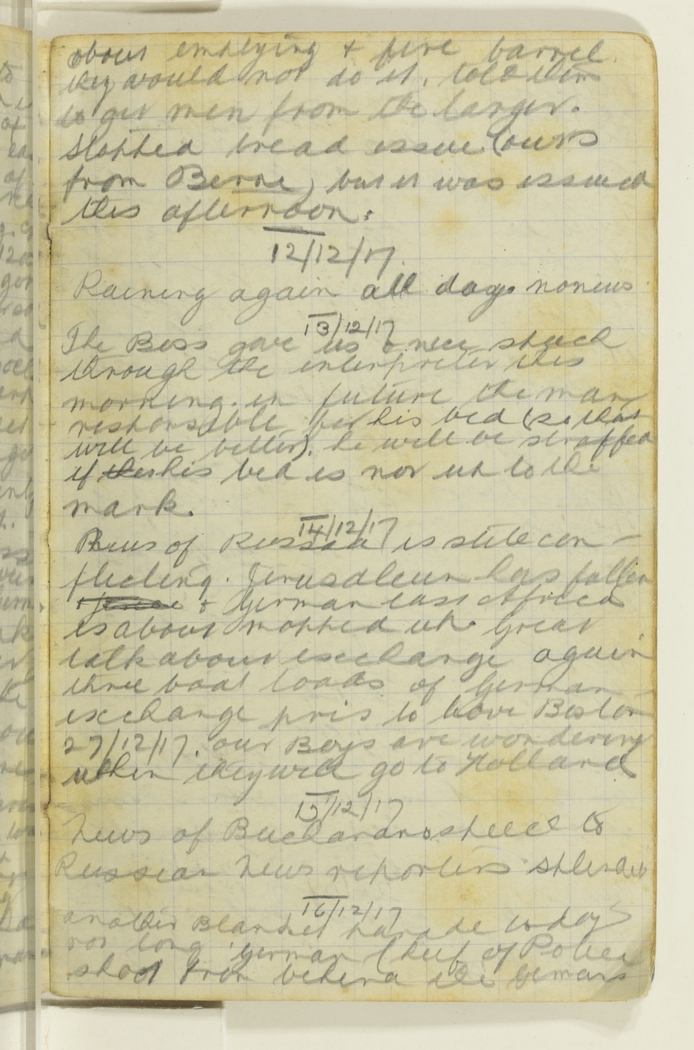 about emptying & fire barrel.
they would not do it, told them
to get men from the larger.
Stopped bread issue (ours
from Berne) but it was issued
this afternoon.
12/12/17.
Raining again all day. no news.
13/12/17
The Boss gave us a nice speech
through the interpreter this
morning. in future the man
responsible for his bed (so that
will be better). he will be straffed
if his bed is not up to the
mark.
14/12/17
News of Russia is still con-
flicting. Jerusaleum has fallen
& German East Africa
is about mopped up. Great
talk about exchange again
three boat loads of German
exchange pris to leave Boston
27/12/17. our Boys are wondering
when they will go to Holland
15/12/17
News of Buchanan speech to
Russian News reporters splended
16/12/17
another Blanket parade today
not long. German Chief of Police
shot from behind the Germans